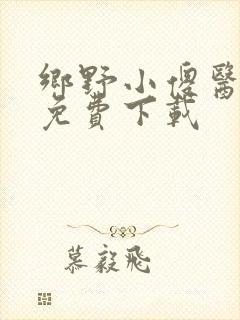 鄉野小傻醫
免費下載
慕毅飛